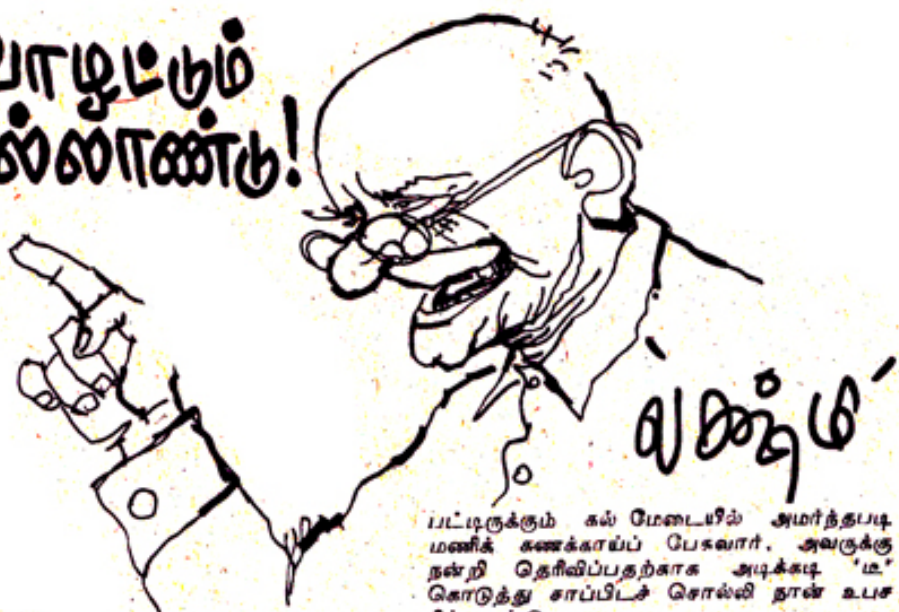 வாழட்டும்
பல்லாண்டு!
பட்டிருக்கும் கல் மேடையில் அமர்ந்தபடி
மணிக் கணக்காய்ப் பேசுவார். அவருக்கு
நன்றி தெரிவிப்பதற்காக அடிக்கடி 'டீ'
கொடுத்து சாப்பிடச் சொல்லி நான் உபச